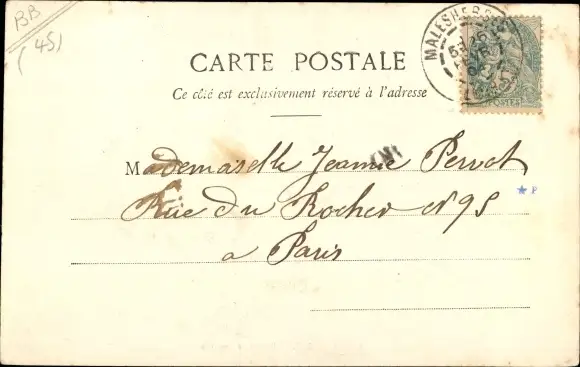 BB
(45)
MALESHERBES
CARTE POSTALE
Ce côté est exclusivement réservé à l'adresse
Mademoiselle Jeanne Pervot
Rue du Rocher N 95
a Paris
POSTES